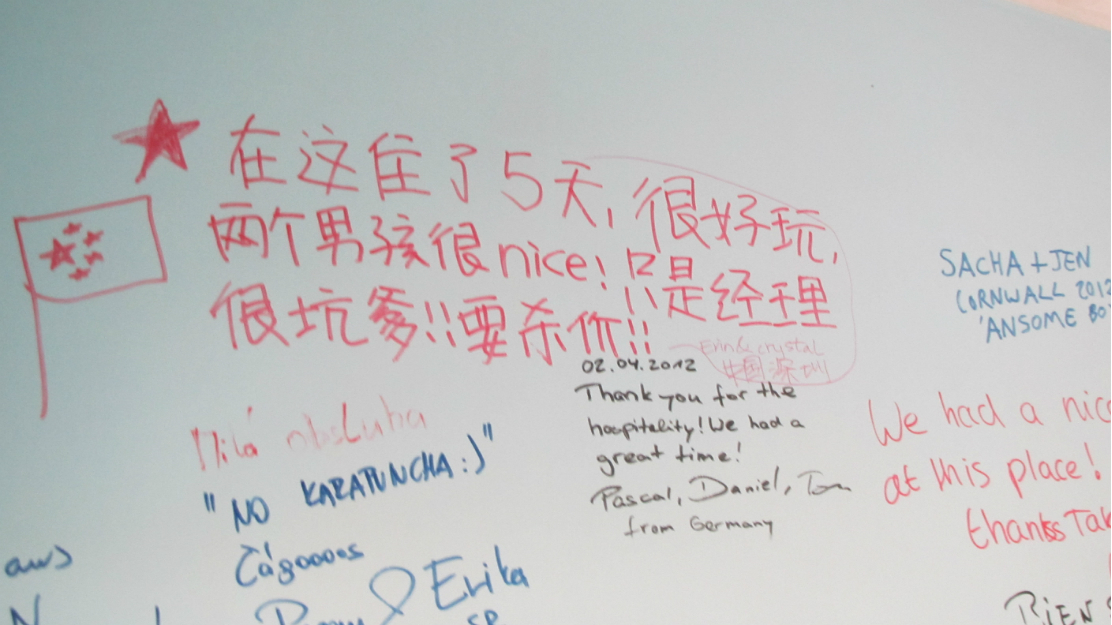 在这住了5天,很好玩,
两个男孩很nice!只是经理
很坑爹!!要杀价!!
Erin & crystal
中国 深圳
SACHA + JEN
CORNWALL 2012
'ANSOME BO
02.04.2012
Thank you for the
hospitality! We had a
great time!
Pascal, Daniel, Tom
from Germany
Milá obsluha
"NO KARATUNCHA :)"
čágoooes
Erika
We had a nic
at this place!
thanks Tak
aws
BIEN